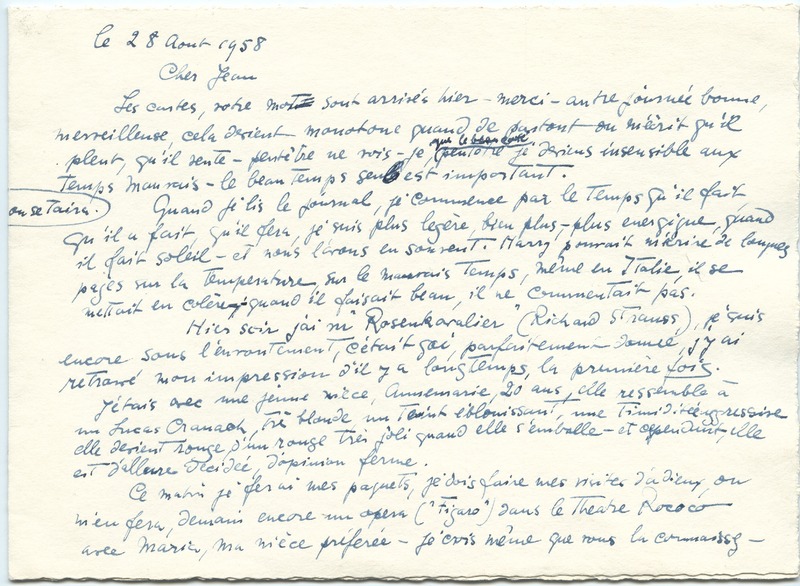 le 28 Aout 1958
Cher Jean
Les cartes, votre mot sont arrivés hier – merci – autre journée bonne,
merveilleuse cela devient monotone quand de partout on m'écrit qu'il
pleut, qu'il vente – peutêtre ne vois-je, que le beau côté peutêtre je deviens insensible aux
temps mauvais – le beau temps seul est important.
on se taira.) Quand je lis le journal, je commence par le temps qu'il fait,
qu'il a fait qu'il fera, je suis plus legère, bien plus – plus energique, quand
il fait soleil – et nous l'avons eu souvent. Harry pouvait m'écrire de longues
pages sur la temperature, sur le mauvais temps, même en Italie, il se
mettait en colère – quand il faisait beau, il ne commentait pas.
Hier soir j'ai vu "Rosenkavalier" (Richard Strauss), je suis
encore sous l'envoutement, c'était gai, parfaitement donné, j'y ai
retrouvé mon impression d'il y a longtemps, la première fois.
J'étais avec une jeune nièce, Annemarie, 20 ans, elle ressemble à
un Lucas Cranach, très blonde, un teint éblouissant, une timidité agressive
elle devient rouge d'un rouge très joli quand elle s'emballe – et cependant, elle
est d'allure décidée, d'opinion ferme.
Ce matin je ferai mes paquets, je dois faire mes visites d'adieux, on
m'en fera, demain encore un opera ("Figaro") dans le théatre Rococo
avec Maria, ma nièce préferée – je crois même que vous la connaissez –